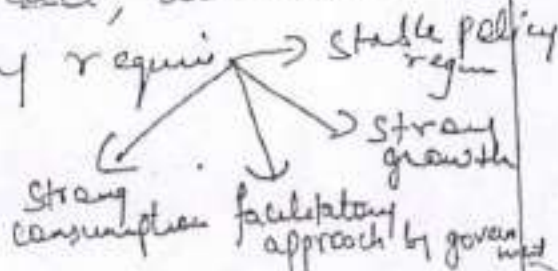 y requires
stable policy
regim
strong
growth
strong
consumption
facilitatory
approach by government